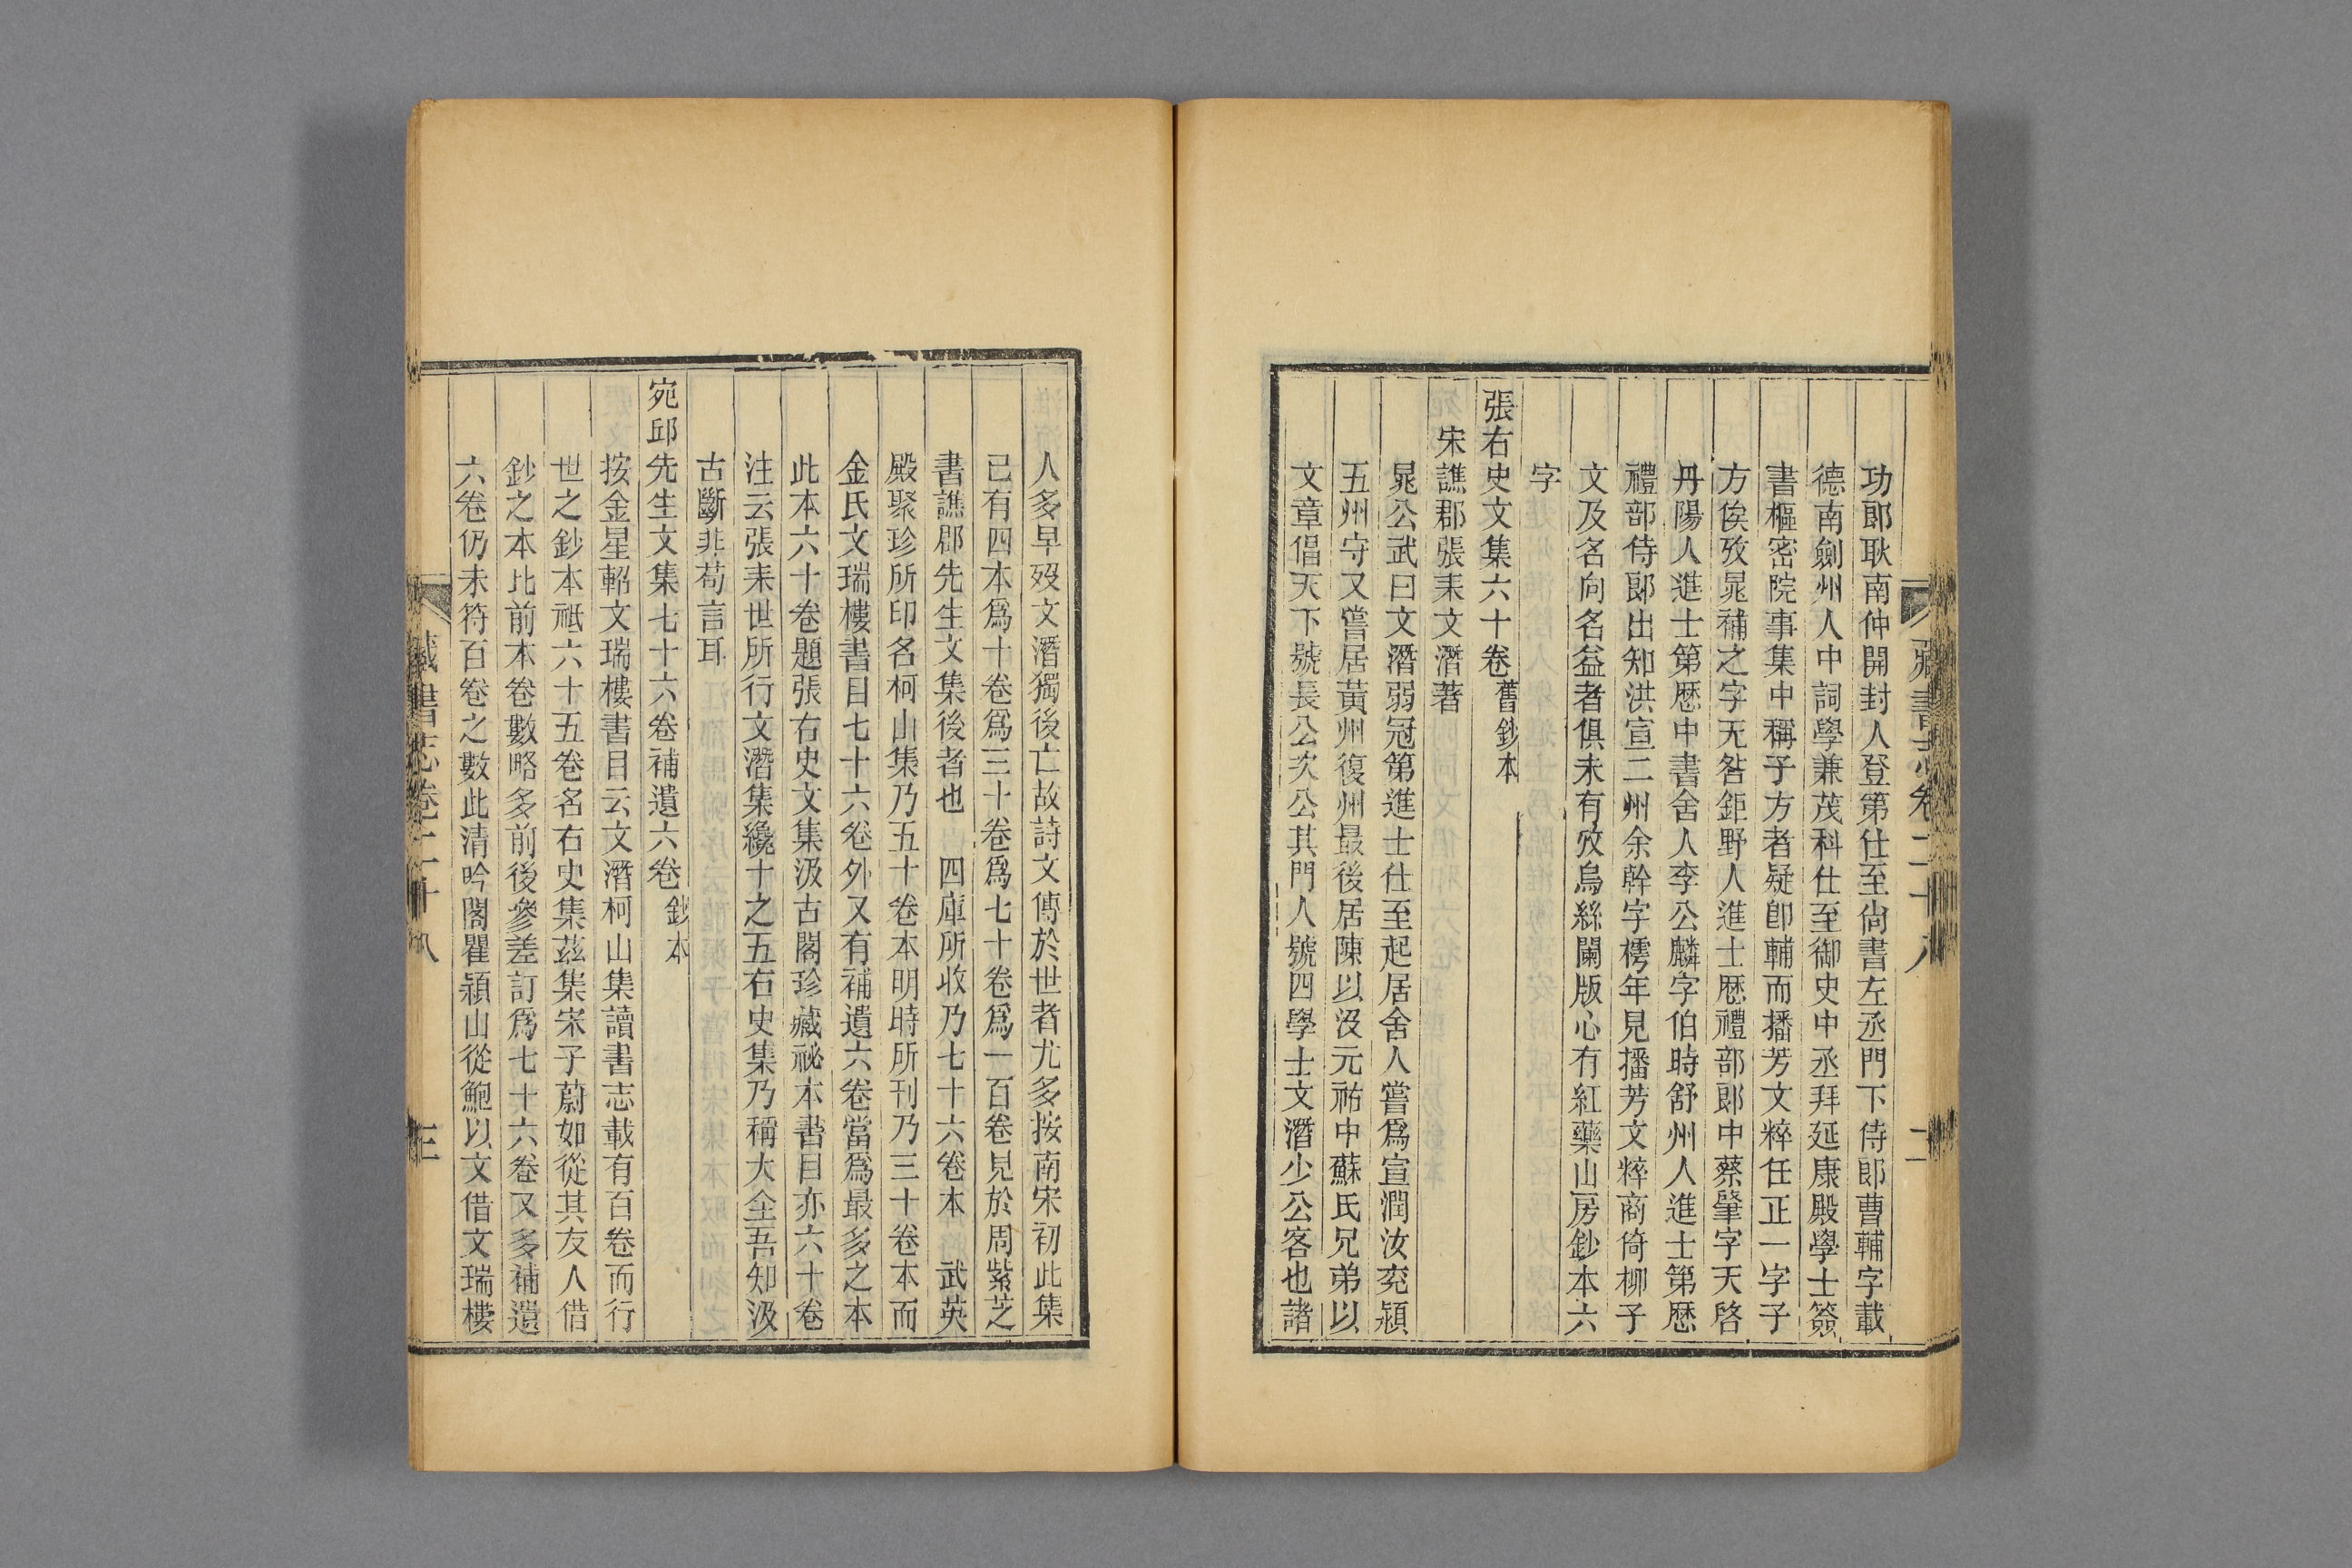 藏書志卷二十八
二
功郎耿南仲開封人登第仕至尚書左丞門下侍郎曹輔字載
德南劍州人中詞學兼茂科仕至御史中丞拜延康殿學士簽
書樞密院事集中稱子方者疑卽輔而播芳文粹任正一字子
方俟攷晁補之字无咎鉅野人進士歴禮部郎中蔡肇字天啓
丹陽人進士第歴中書舍人李公麟字伯時舒州人進士第歴
禮部侍郎出知洪宣二州余幹字樗年見播芳文粹商倚柳子
文及名向名益者俱未有攷烏絲闌版心有紅藥山房鈔本六
字
張右史文集六十卷舊鈔本
宋譙郡張耒文潛著
晁公武曰文潛弱冠第進士仕至起居舍人嘗爲宣潤汝兖潁
五州守又嘗居黃州復州最後居陳以沒元祐中蘇氏兄弟以
文章倡天下號長公次公其門人號四學士文潛少公客也諸
人多早歿文潛獨後亡故詩文傳於世者尤多按南宋初此集
已有四本爲十卷爲三十卷爲七十卷爲一百卷見於周紫芝
書譙郡先生文集後者也　四庫所收乃七十六卷本　武英
殿聚珍所印名柯山集乃五十卷本明時所刊乃三十卷本而
金氏文瑞樓書目七十六卷外又有補遺六卷當爲最多之本
此本六十卷題張右史文集汲古閣珍藏祕本書目亦六十卷
注云張耒世所行文潛集纔十之五右史集乃稱大全吾知汲
古斷非苟言耳
宛邱先生文集七十六卷補遺六卷鈔本
按金星軺文瑞樓書目云文潛柯山集讀書志載有百卷而行
世之鈔本祗六十五卷名右史集茲集宋子蔚如從其友人借
鈔之本比前本卷數略多前後參差訂爲七十六卷又多補遺
六卷仍未符百卷之數此清吟閣瞿潁山從鮑以文借文瑞樓
藏書志卷二十八
三